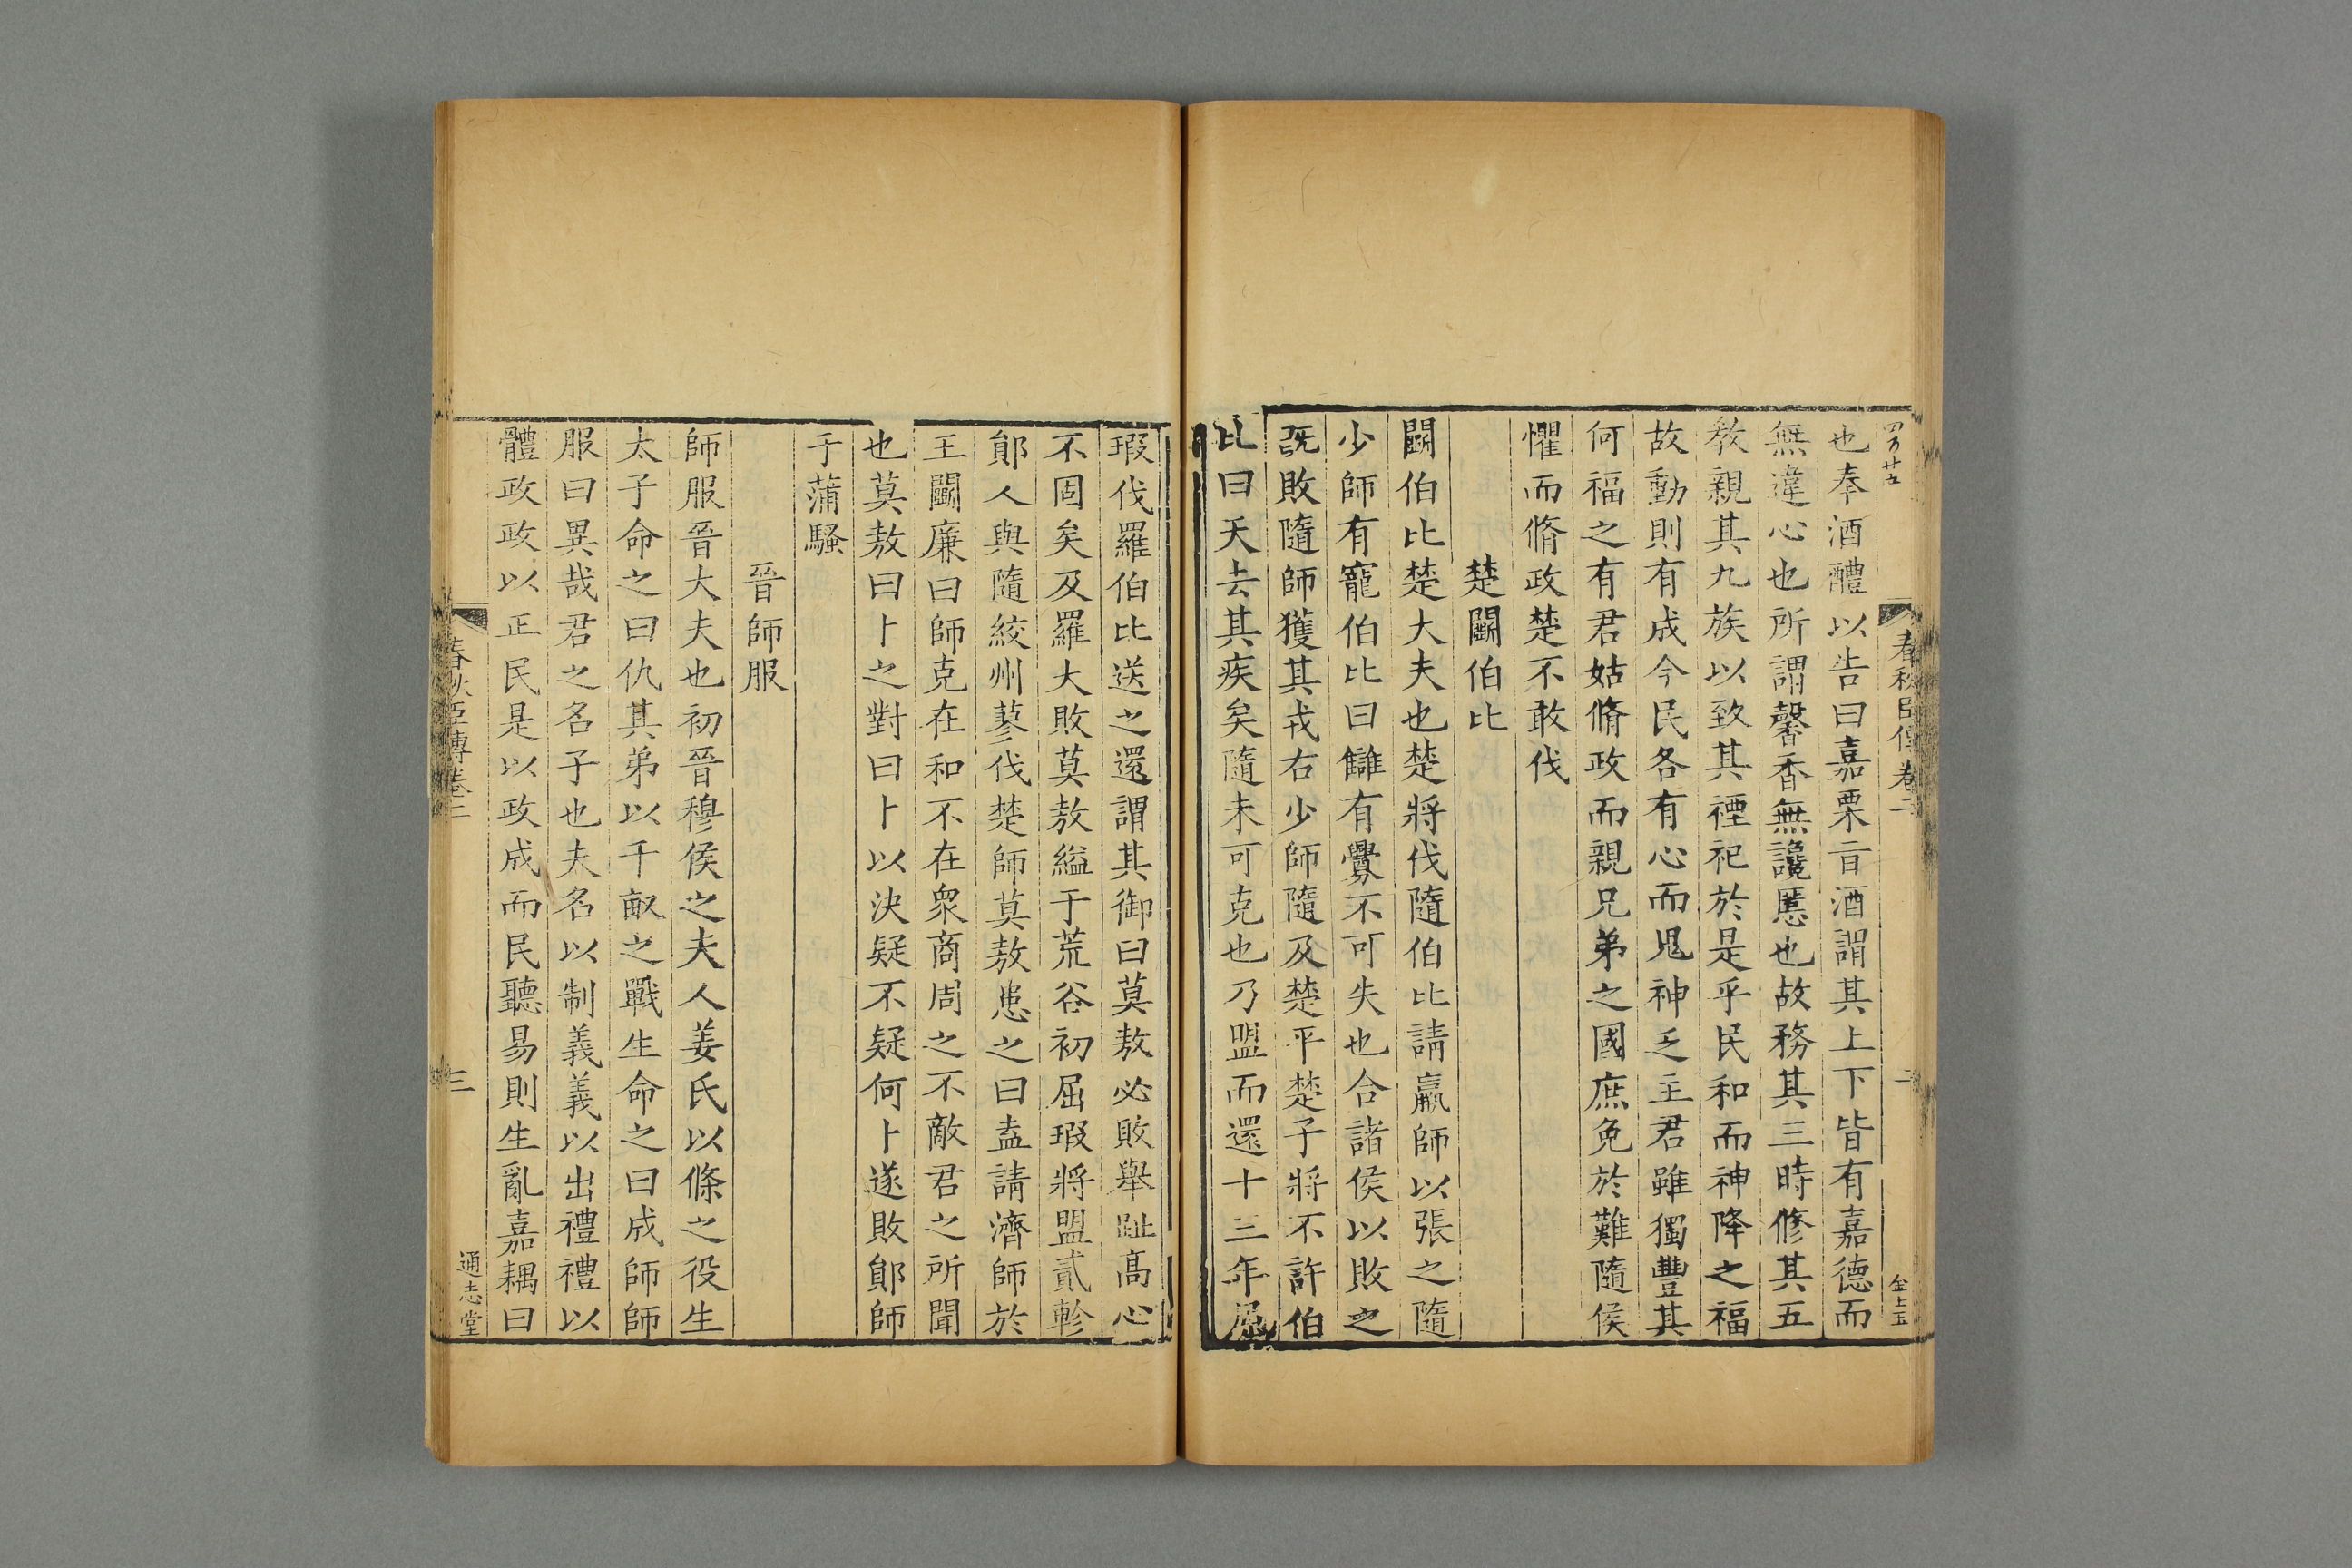 四百廿五
春秋臣傳卷二
二
金上玉
也奉酒醴以告曰嘉栗旨酒謂其上下皆有嘉德而
無違心也所謂馨香無讒慝也故務其三時修其五
教親其九族以致其禋祀於是乎民和而神降之福
故動則有成今民各有心而鬼神乏主君雖獨豐其
何福之有君姑脩政而親兄弟之國庶免於難隨侯
懼而脩政楚不敢伐
楚鬭伯比
鬭伯比楚大夫也楚將伐隨伯比請羸師以張之隨
少師有寵伯比曰讎有釁不可失也合諸侯以敗之
既敗隨師獲其戎右少師隨及楚平楚子將不許伯
比曰天去其疾矣隨未可克也乃盟而還十三年屈
瑕伐羅伯比送之還謂其御曰莫敖必敗舉趾高心
不固矣及羅大敗莫敖縊于荒谷初屈瑕將盟貳軫
鄖人與隨絞州蓼伐楚師莫敖患之曰盍請濟師於
王鬭廉曰師克在和不在衆商周之不敵君之所聞
也莫敖曰卜之對曰卜以決疑不疑何卜遂敗鄖師
于蒲騷
晉師服
師服晉大夫也初晉穆侯之夫人姜氏以條之役生
太子命之曰仇其弟以千畝之戰生命之曰成師師
服曰異哉君之名子也夫名以制義義以出禮禮以
體政政以正民是以政成而民聽易則生亂嘉耦曰
春秋臣傳卷二
三
通志堂